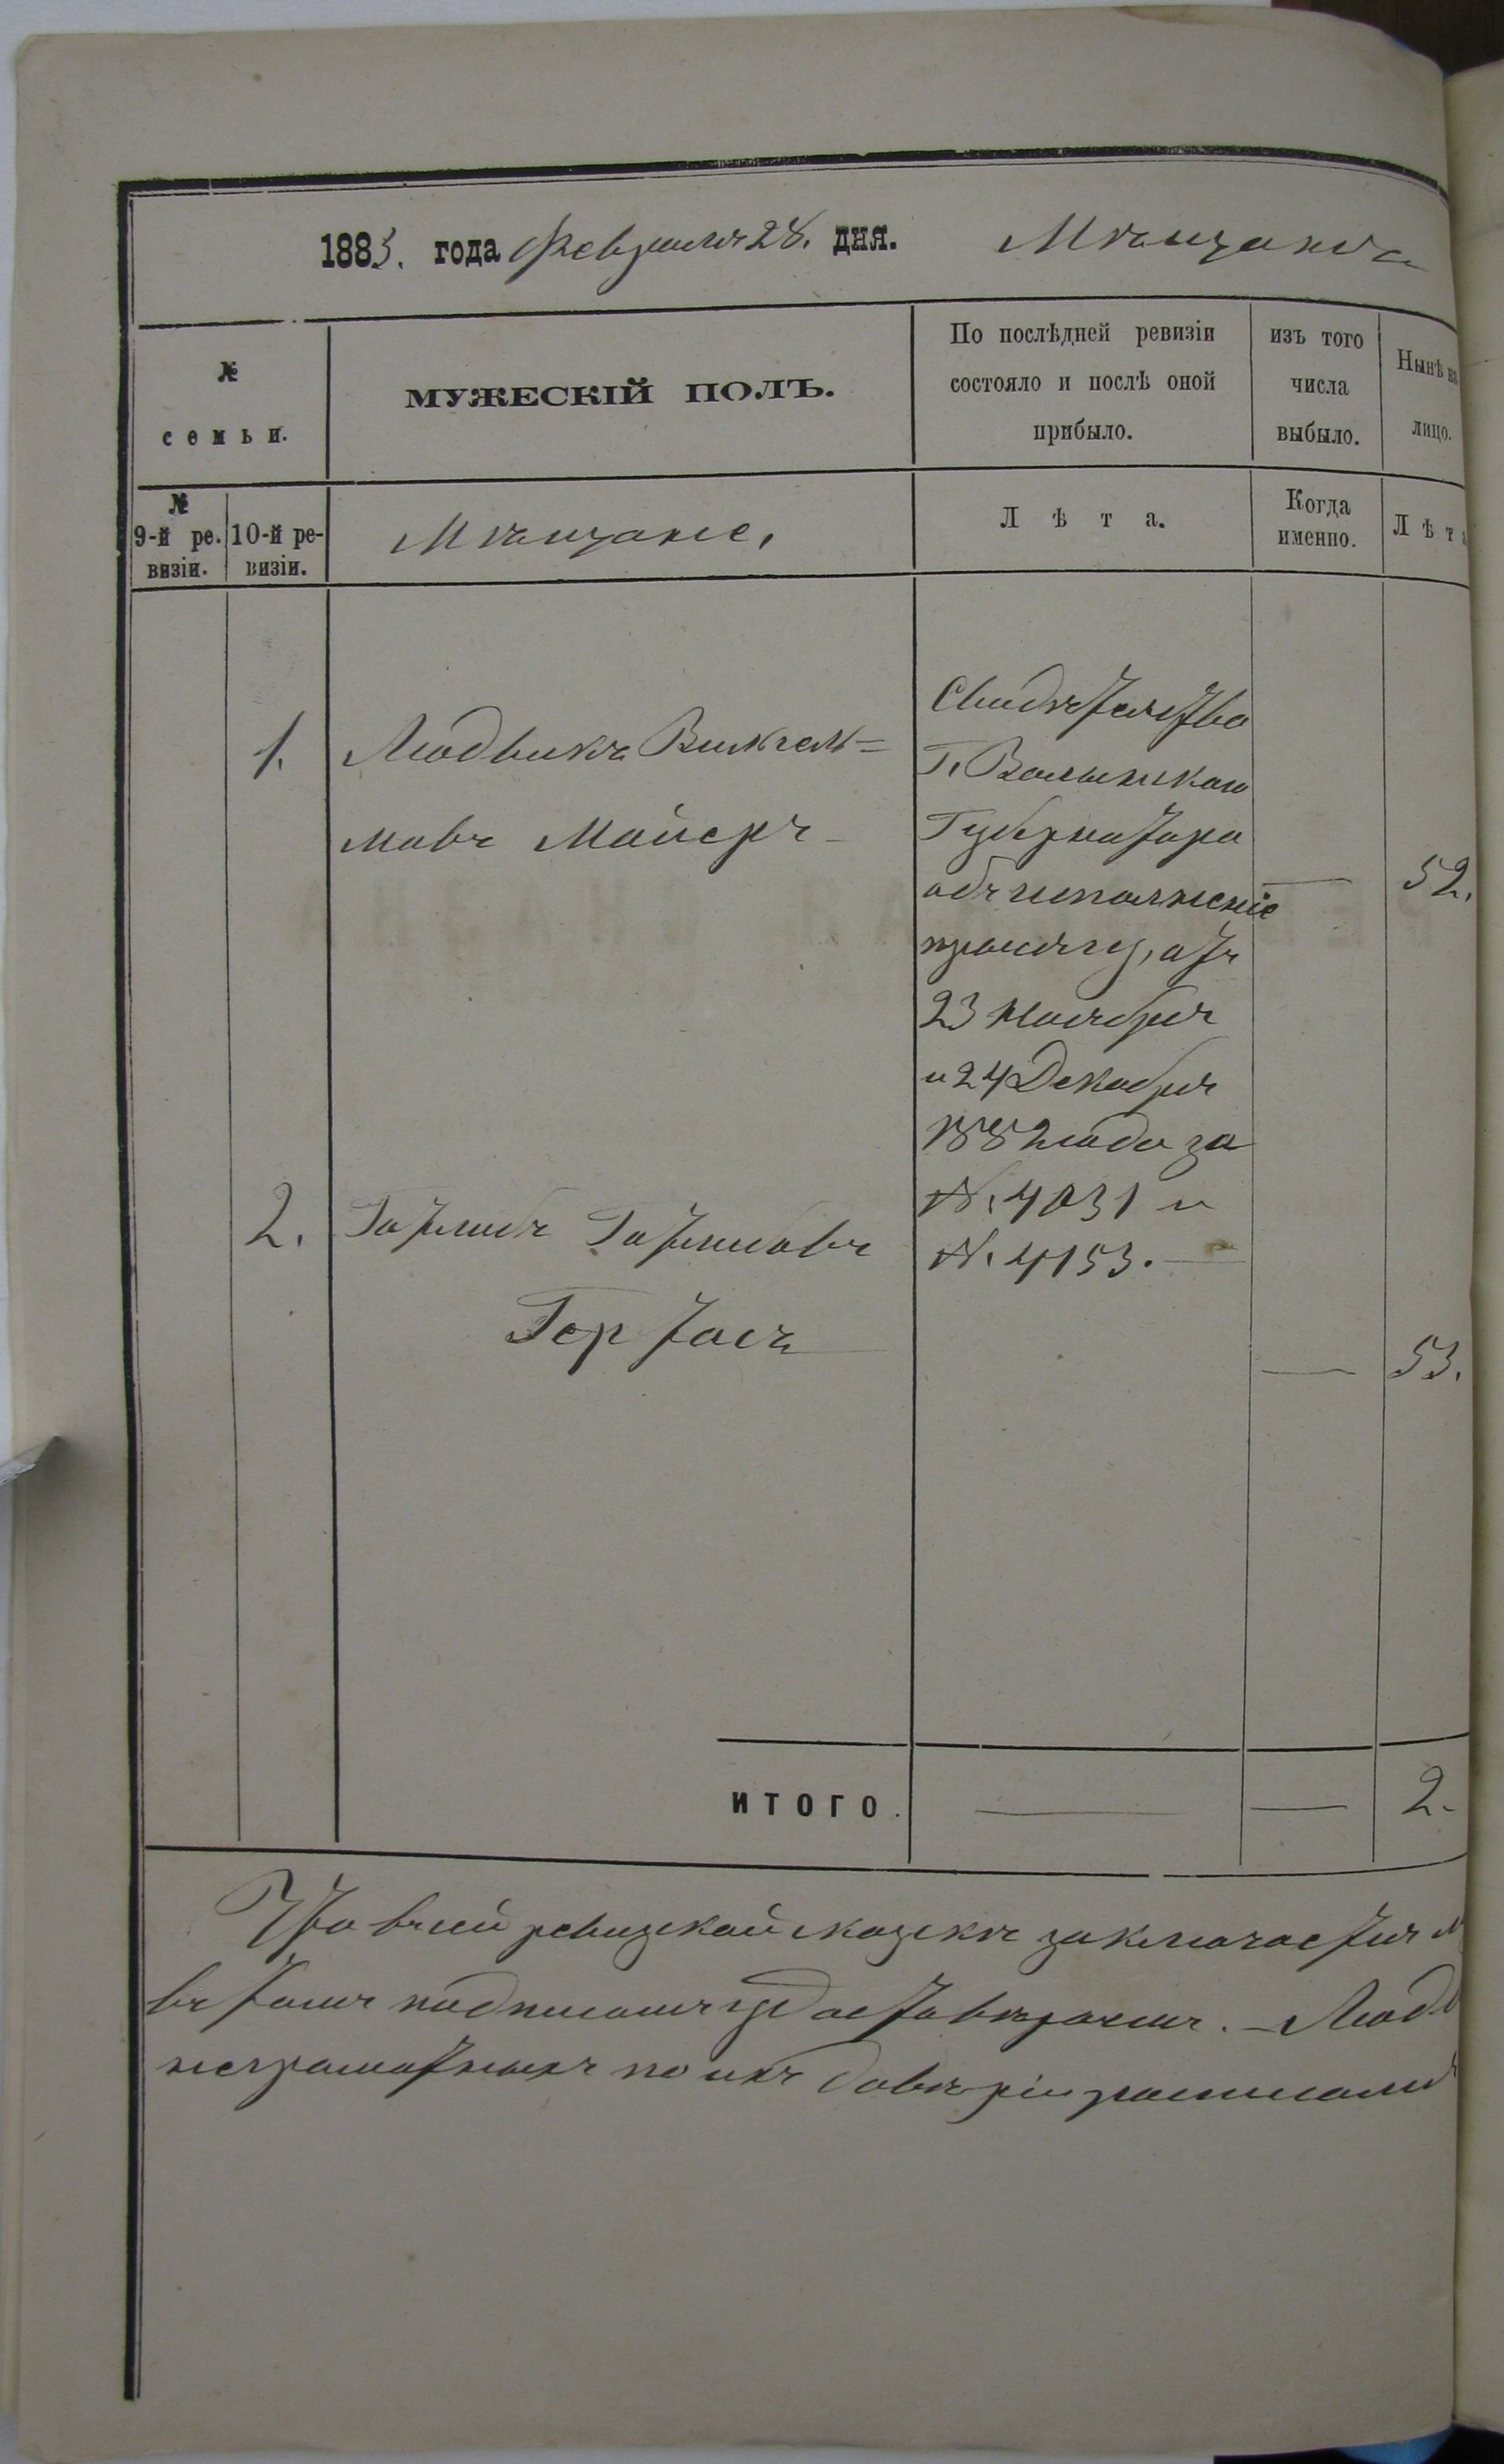 1883. года Февраля 28. дня. Мѣщанъ
№
семьи.
МУЖЕСКІЙ ПОЛЪ.
По послѣдней ревизіи
состояло и послѣ оной
прибыло.
изъ того
числа
выбыло.
Нынѣ на
лицо.
№
9-й ре-
визіи.
10-й ре-
визіи.
Мѣщане,
Лѣта.
Когда
именно.
Лѣта
1. Людвикъ Вильгель=
мовъ Майеръ
52.
Свидѣтельства
Г. Волынскаго
Губернатора
объ исполненіе
присяги, отъ
23 Ноября
и 24 Декабря
1882 года за
№. 4031 и
№. 4153.
2. Готлибъ Готлибовъ
Гертасъ
53.
ИТОГО. 2.
Что въ сей ревизской сказкѣ заключается
въ томъ подпискою удостовѣряемъ. – Людв
неграмотныхъ по ихъ довѣрію росписались